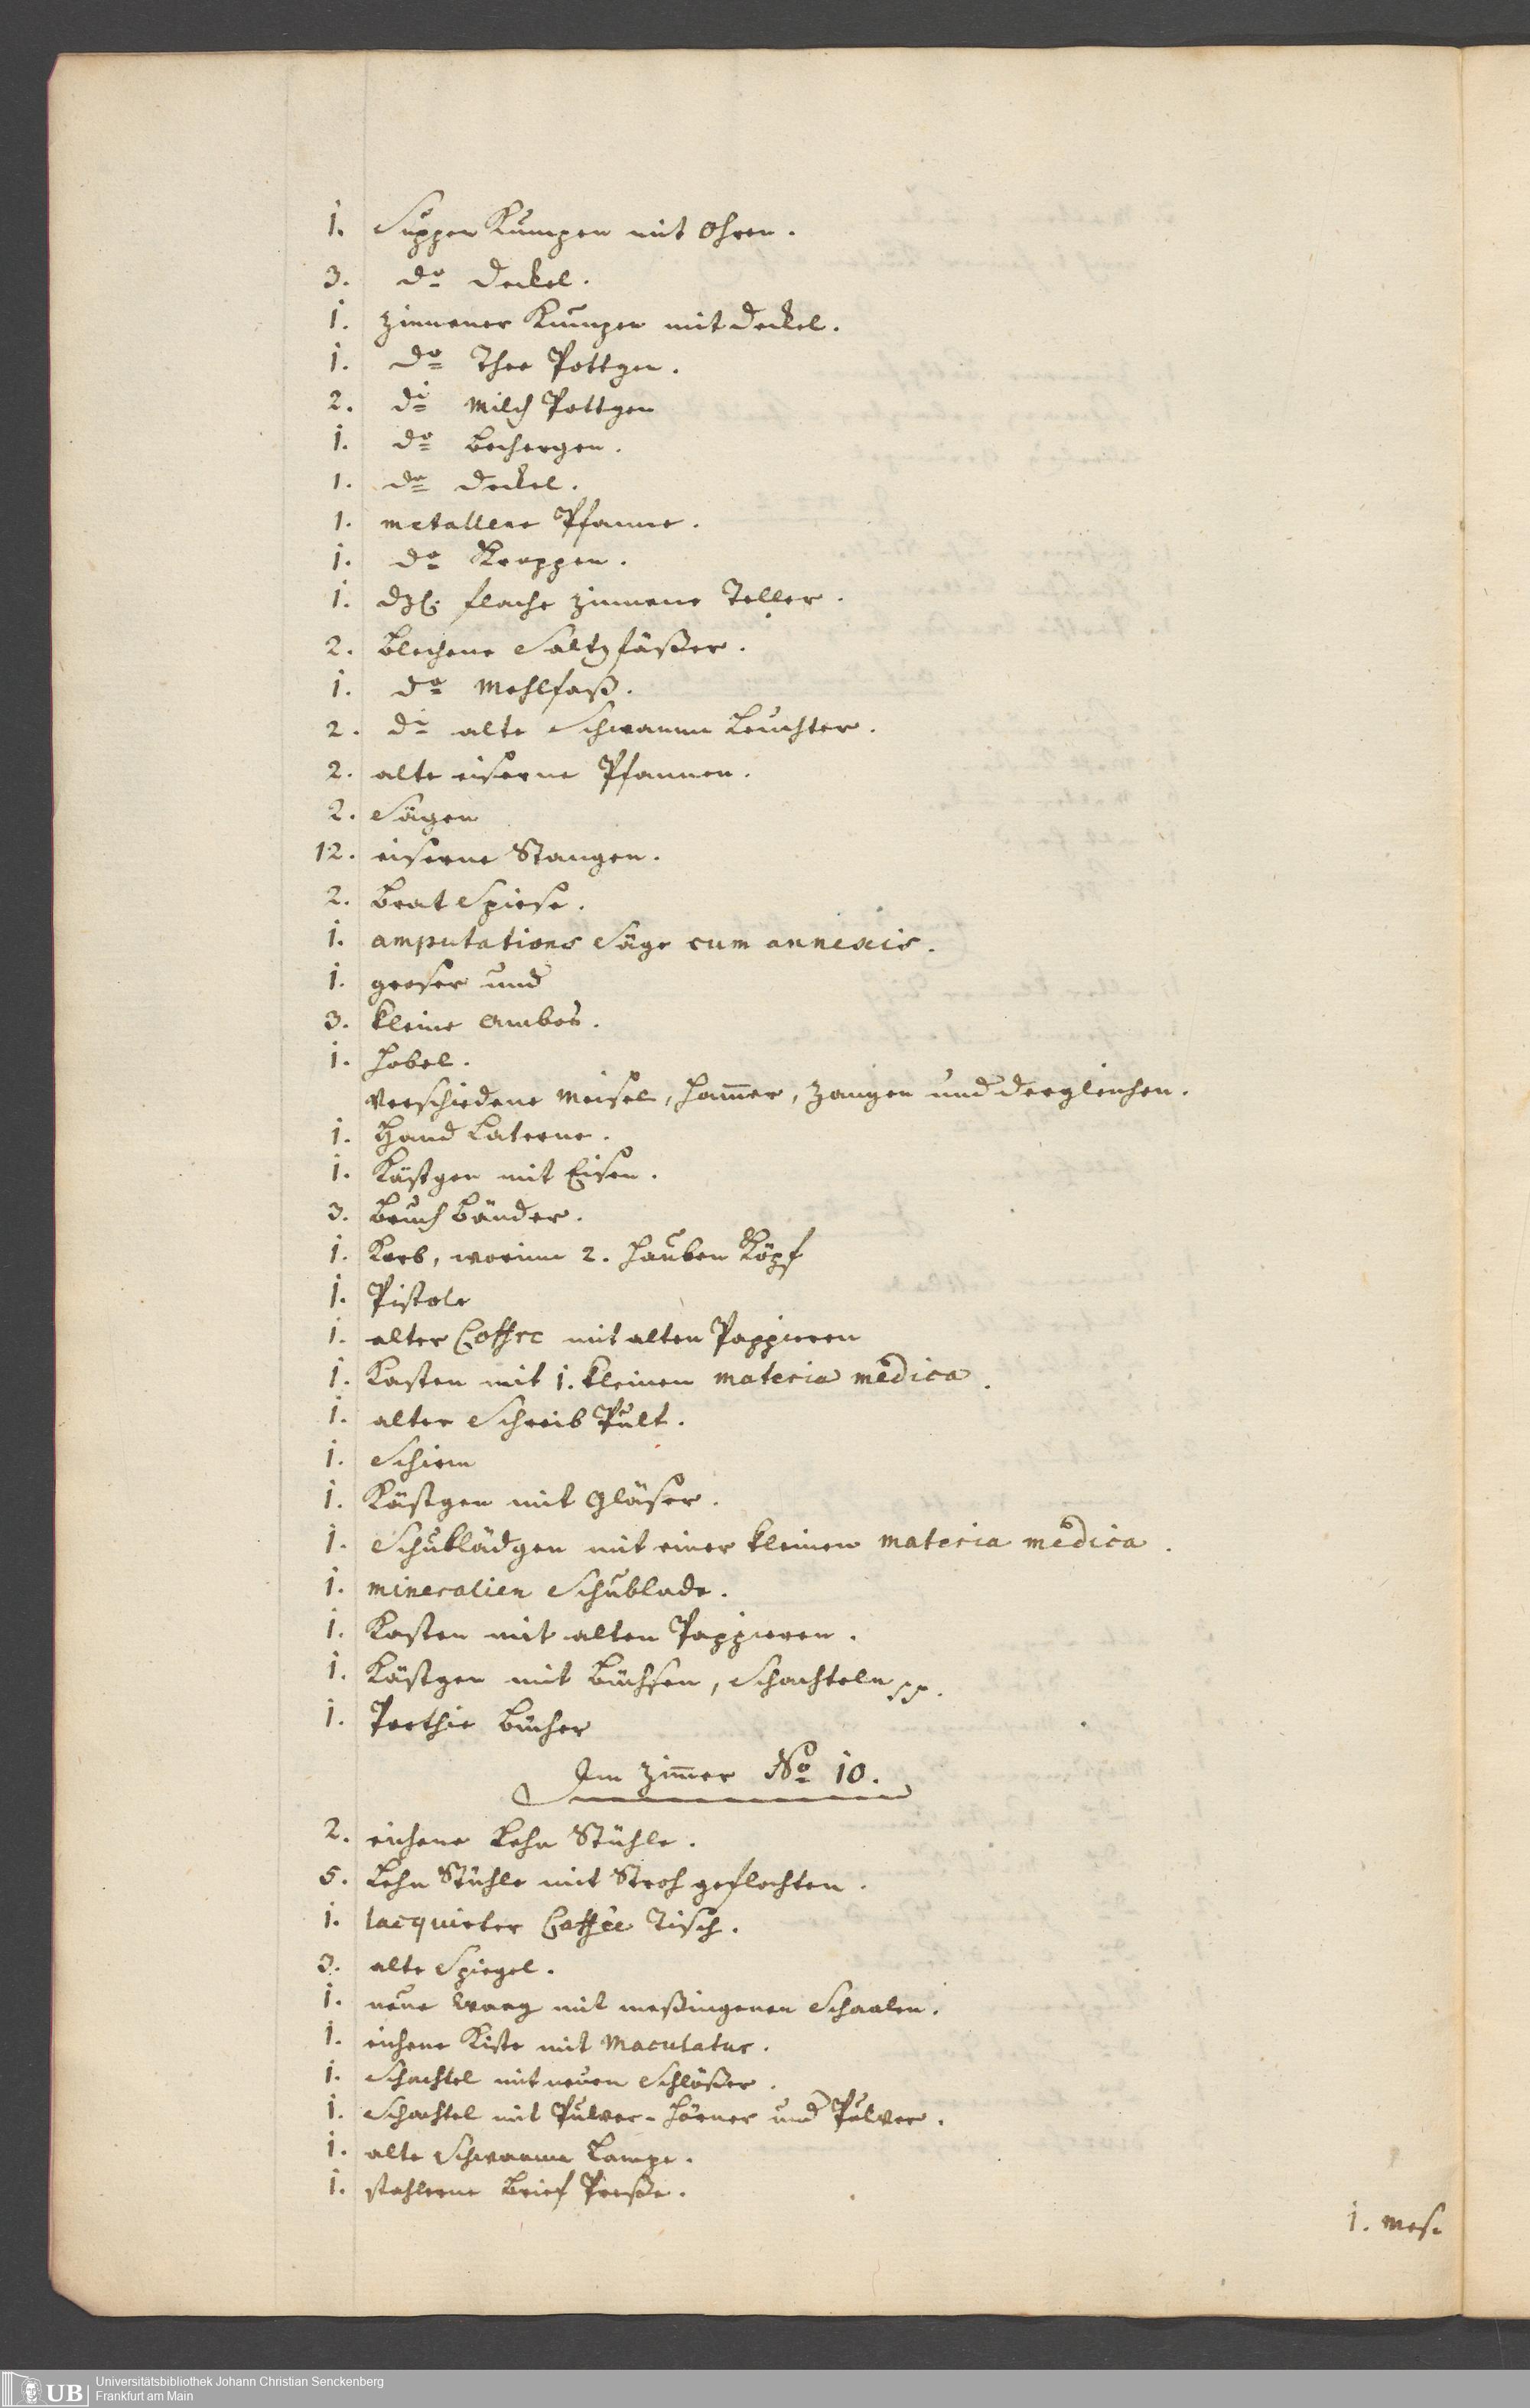 1. Suppen Kumpen mit Ohren.
3. do Deckel.
1. zinnener Kumpen mit Deckel.
1. do Thee Pottgen.
2. di Milch Pottgen
1. do Bechergen.
1. do Deckel.
1. metallene Pfanne.
1. do Kroppen.
1. dzl. flache zinnene Teller.
2. blechene Saltzfäßer.
1. do Mehlfaß.
2. di alte Schwamm Leuchter.
2. alte eiserne Pfannen.
2. Sägen
12. eiserne Stangen.
2. Brat Spiese.
1. amputations Säge cum annexis.
1. groser und
3. kleine Ambos.
1. Hobel.
verschiedene Meisel, Ham̄er, Zangen und dergleichen.
1. Hand Laterne.
1. Kästgen mit Eisen.
3. Bruch Bänder.
1. Korb, worinn 2. Hauben Köpf
1. Pistole
1. alter Coffre mit alten Pappieren
1. Kasten mit 1. kleinen materia medica.
1. alter Schreib Pult.
1. Schirm
1. Kästgen mit Gläser.
1. Schublädgen mit einer kleinen materia medica.
1. mineralien Schublade.
1. Kasten mit alten Pappieren.
1. Kästgen mit Büchsen, Schachteln pp.
1. Parthie Bücher
Im Zim̄er No 10.
2. eichene Lehn Stühle.
5. Lehn Stühle mit Stroh geflochten.
1. lacquirter Caffée Tisch.
3. alte Spiegel.
1. neue Waag mit meßingenen Schaalen.
1. eichene Kiste mit Maculatur.
1. Schachtel mit neuen Schlößer.
1. Schachtel mit Pulver-Hörner und Pulver.
1. alte Schwamm Lampe.
1. stahlerne Brief Preße.
1. Mes.
UB Universitätsbibliothek Johann Christian Senckenberg
Frankfurt am Main